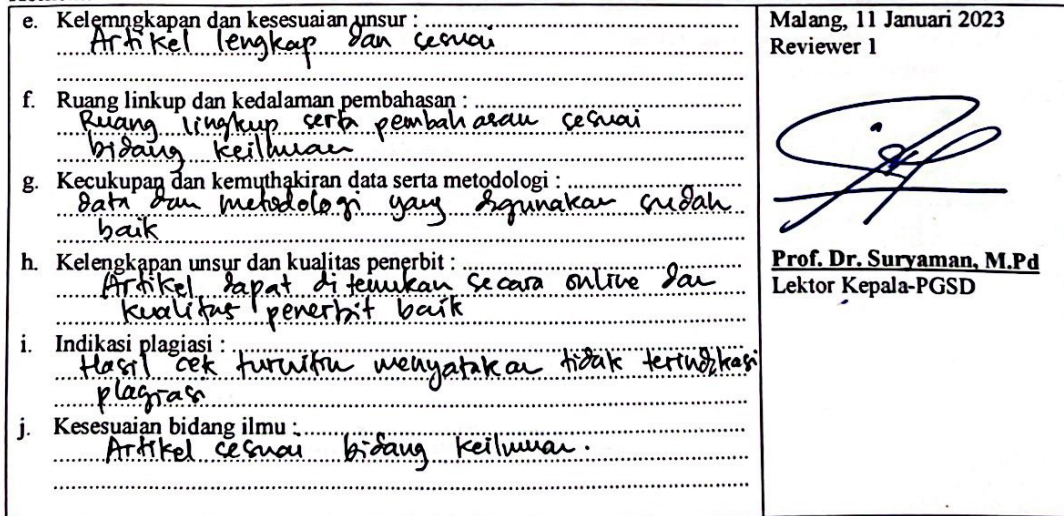 e. Kelemngkapan dan kesesuaian unsur :
Artikel lengkap dan sesuai
f. Ruang linkup dan kedalaman pembahasan :
Ruang lingkup serta pembahasan sesuai
bidang keilmuan
g. Kecukupan dan kemuthakiran data serta metodologi :
data dan metodologi yang digunakan sudah
baik
h. Kelengkapan unsur dan kualitas penerbit :
Artikel dapat ditemukan secara online dan
kualitas penerbit baik
i. Indikasi plagiasi :
Hasil cek turnitin menyatakan tidak terindikasi
plagiasi
j. Kesesuaian bidang ilmu :
Artikel sesuai bidang keilmuan.
Malang, 11 Januari 2023
Reviewer 1
Prof. Dr. Suryaman, M.Pd
Lektor Kepala-PGSD